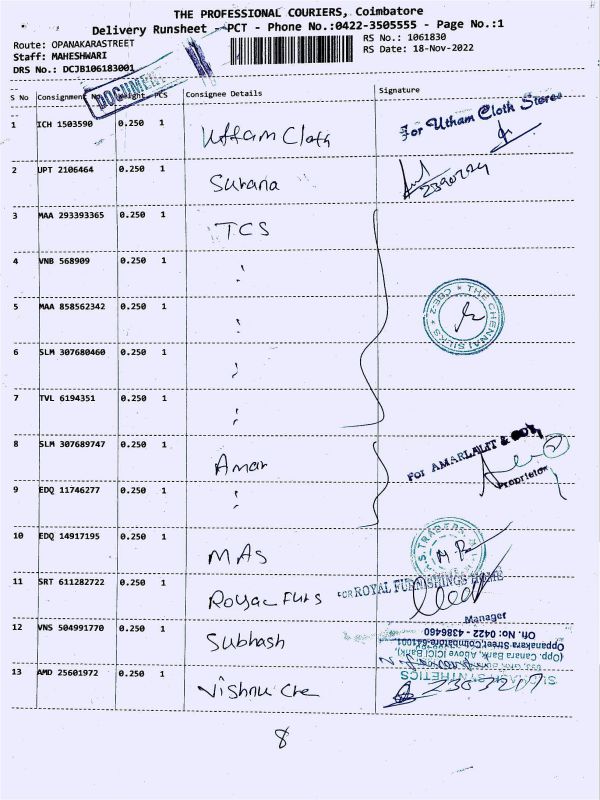 THE PROFESSIONAL COURIERS, Coimbatore
Delivery Runsheet - PCT - Phone No.:0422-3505555 - Page No.:1
Route: OPANAKARASTREET
RS No.: 1061830
Staff: MAHESHWARI
RS Date: 18-Nov-2022
DRS No.: DCJB106183001
DOCUMENT
S No Consignment PCS Consignee Details Signature
1 ICH 1503590 0.250 1 Uttam Cloth For Utham Cloth Stores
2 UPT 2106464 0.250 1 Surana
3 MAA 293393365 0.250 1 TCS
4 VNB 568909 0.250 1 "
5 MAA 858562342 0.250 1 " THE CHENNAI SILKS CBE-2
6 SLM 307680460 0.250 1 "
7 TVL 6194351 0.250 1 "
8 SLM 307689747 0.250 1 Amar For AMARLALIT &
Proprietor
9 EDQ 11746277 0.250 1 "
10 EDQ 14917195 0.250 1 MAS
11 SRT 611282722 0.250 1 Royal Furs FOR ROYAL FURNISHINGS HOME
Manager
12 VNS 504991770 0.250 1 Subhash
Ofi: No: 0422 - 4386460
Oppanakara Street, Coimbatore-641001.
(Opp. Canara Bank, Above ICICI Bank),
13 AMD 25601972 0.250 1 Vishnu Che
SYNTHETICS
8